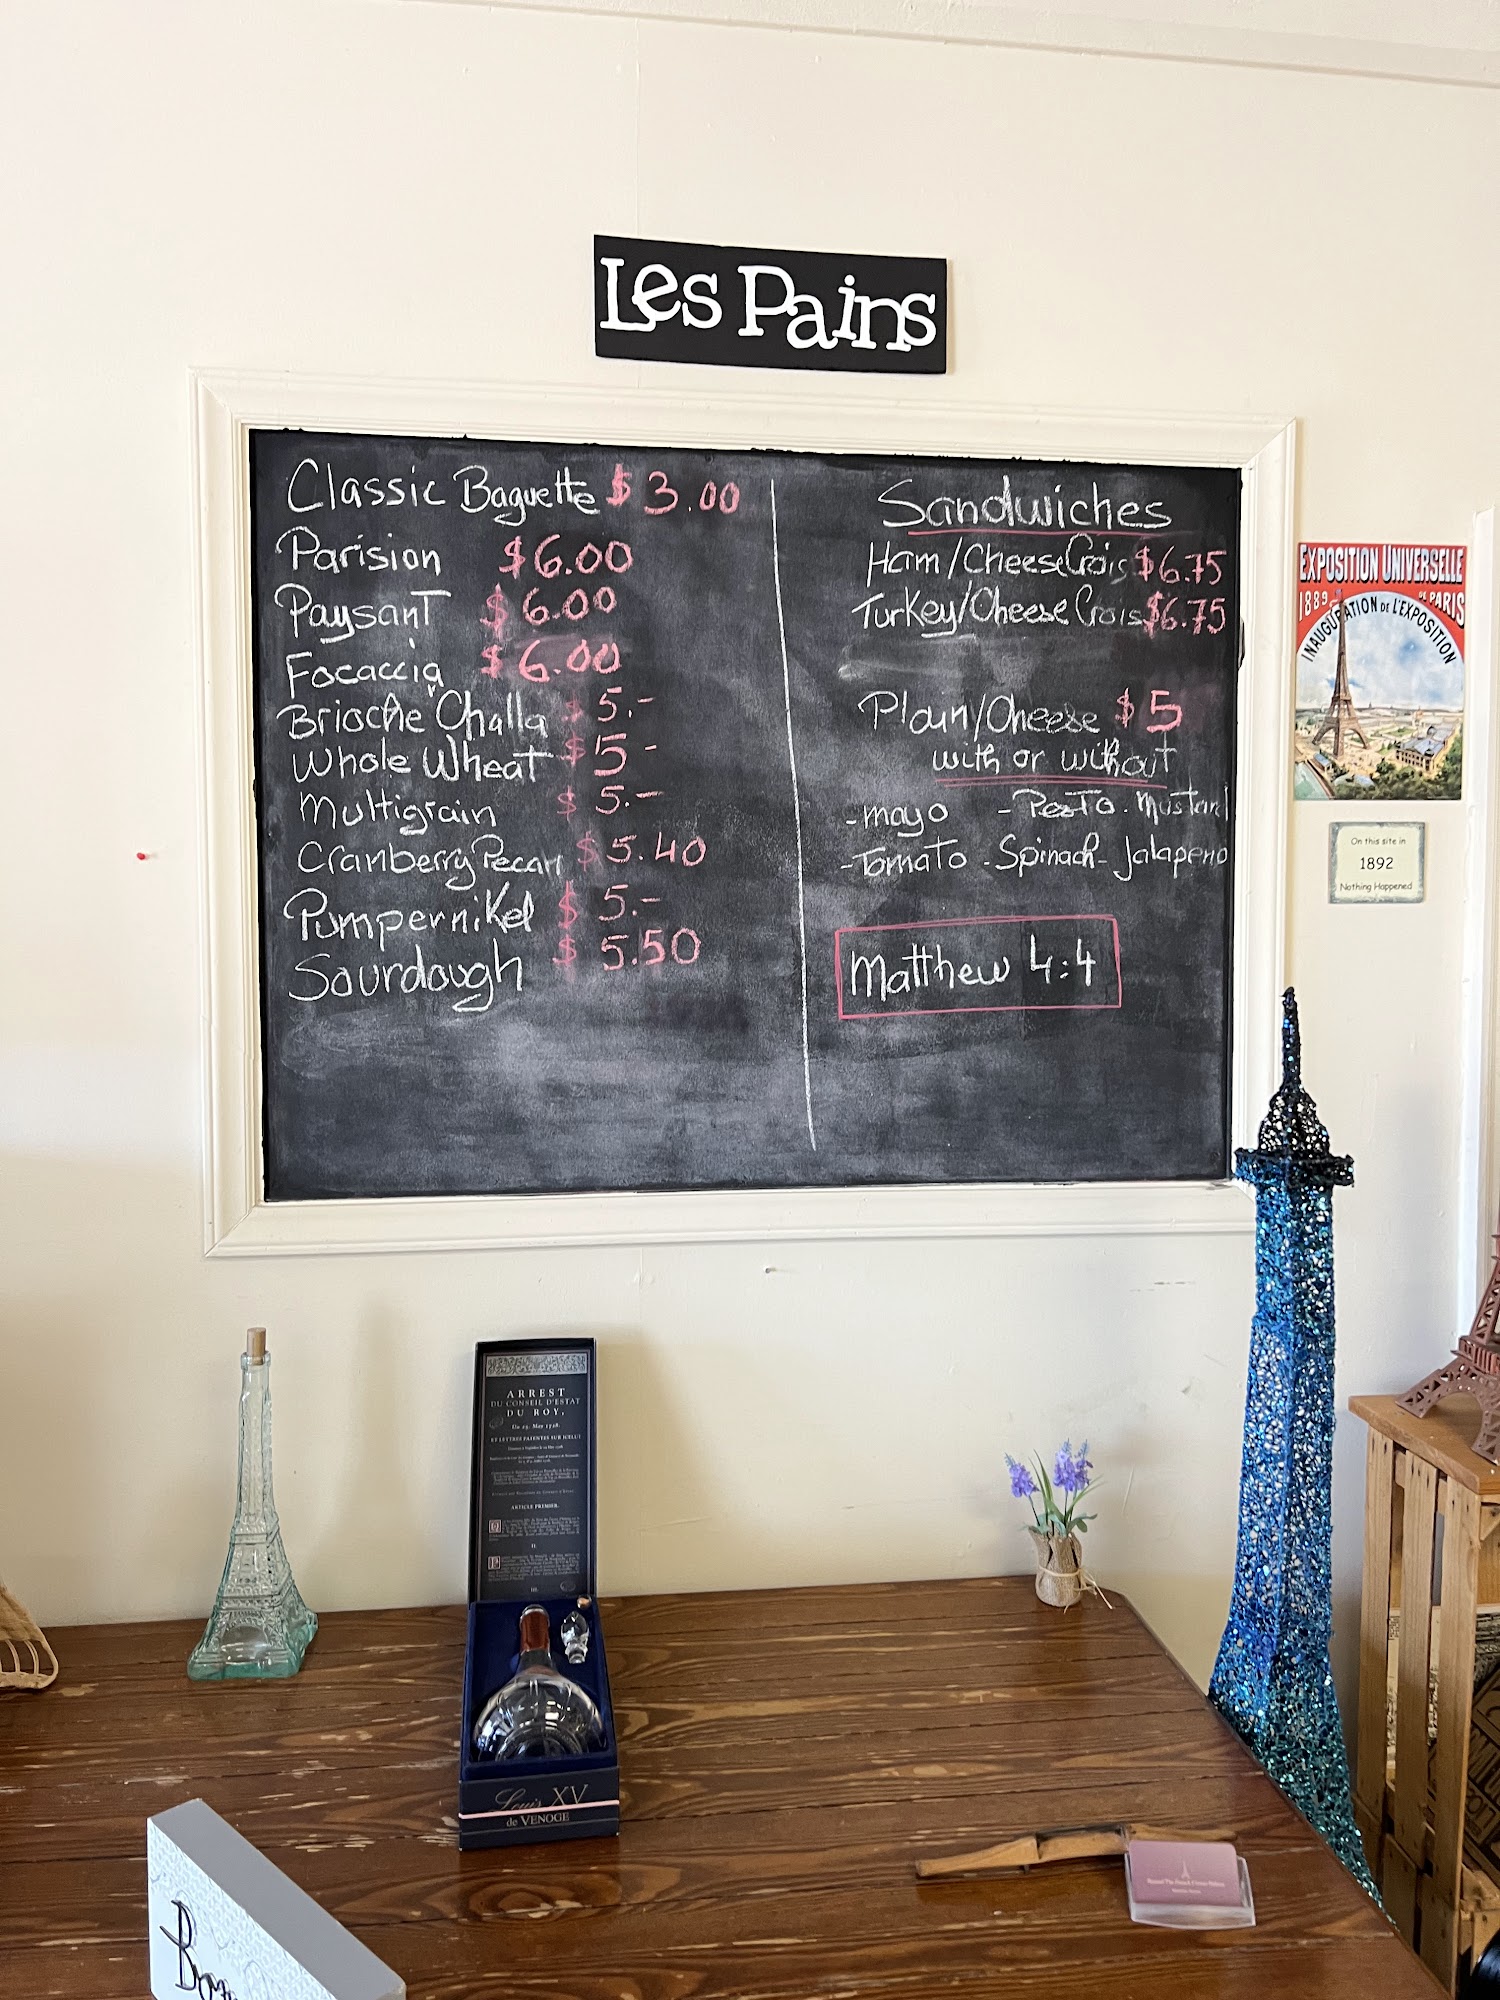 Les Pains
Classic Baguette $3.00
Parision $6.00
Paysant $6.00
Focaccia $6.00
Brioche Challa $5.-
Whole Wheat $5-
Multigrain $5.-
Cranberry Pecan $5.40
Pumpernikel $5.-
Sourdough $5.50
Sandwiches
Ham/Cheese Crois $6.75
Turkey/Cheese Crois $6.75
Plain/Cheese $5
with or without
-mayo - Pesto - Mustard
-Tomato - Spinach - Jalapeno
Matthew 4:4
EXPOSITION UNIVERSELLE
1889 DE PARIS
INAUGURATION DE L'EXPOSITION
On this site in
1892
Nothing Happened
ARREST
DU CONSEIL D'ESTAT
DU ROY,
Du 25. May 1728.
ET LETTRES PATENTES SUR ICELUY
ARTICLE PREMIER.
II.
III.
Louis XV
de VENOGE